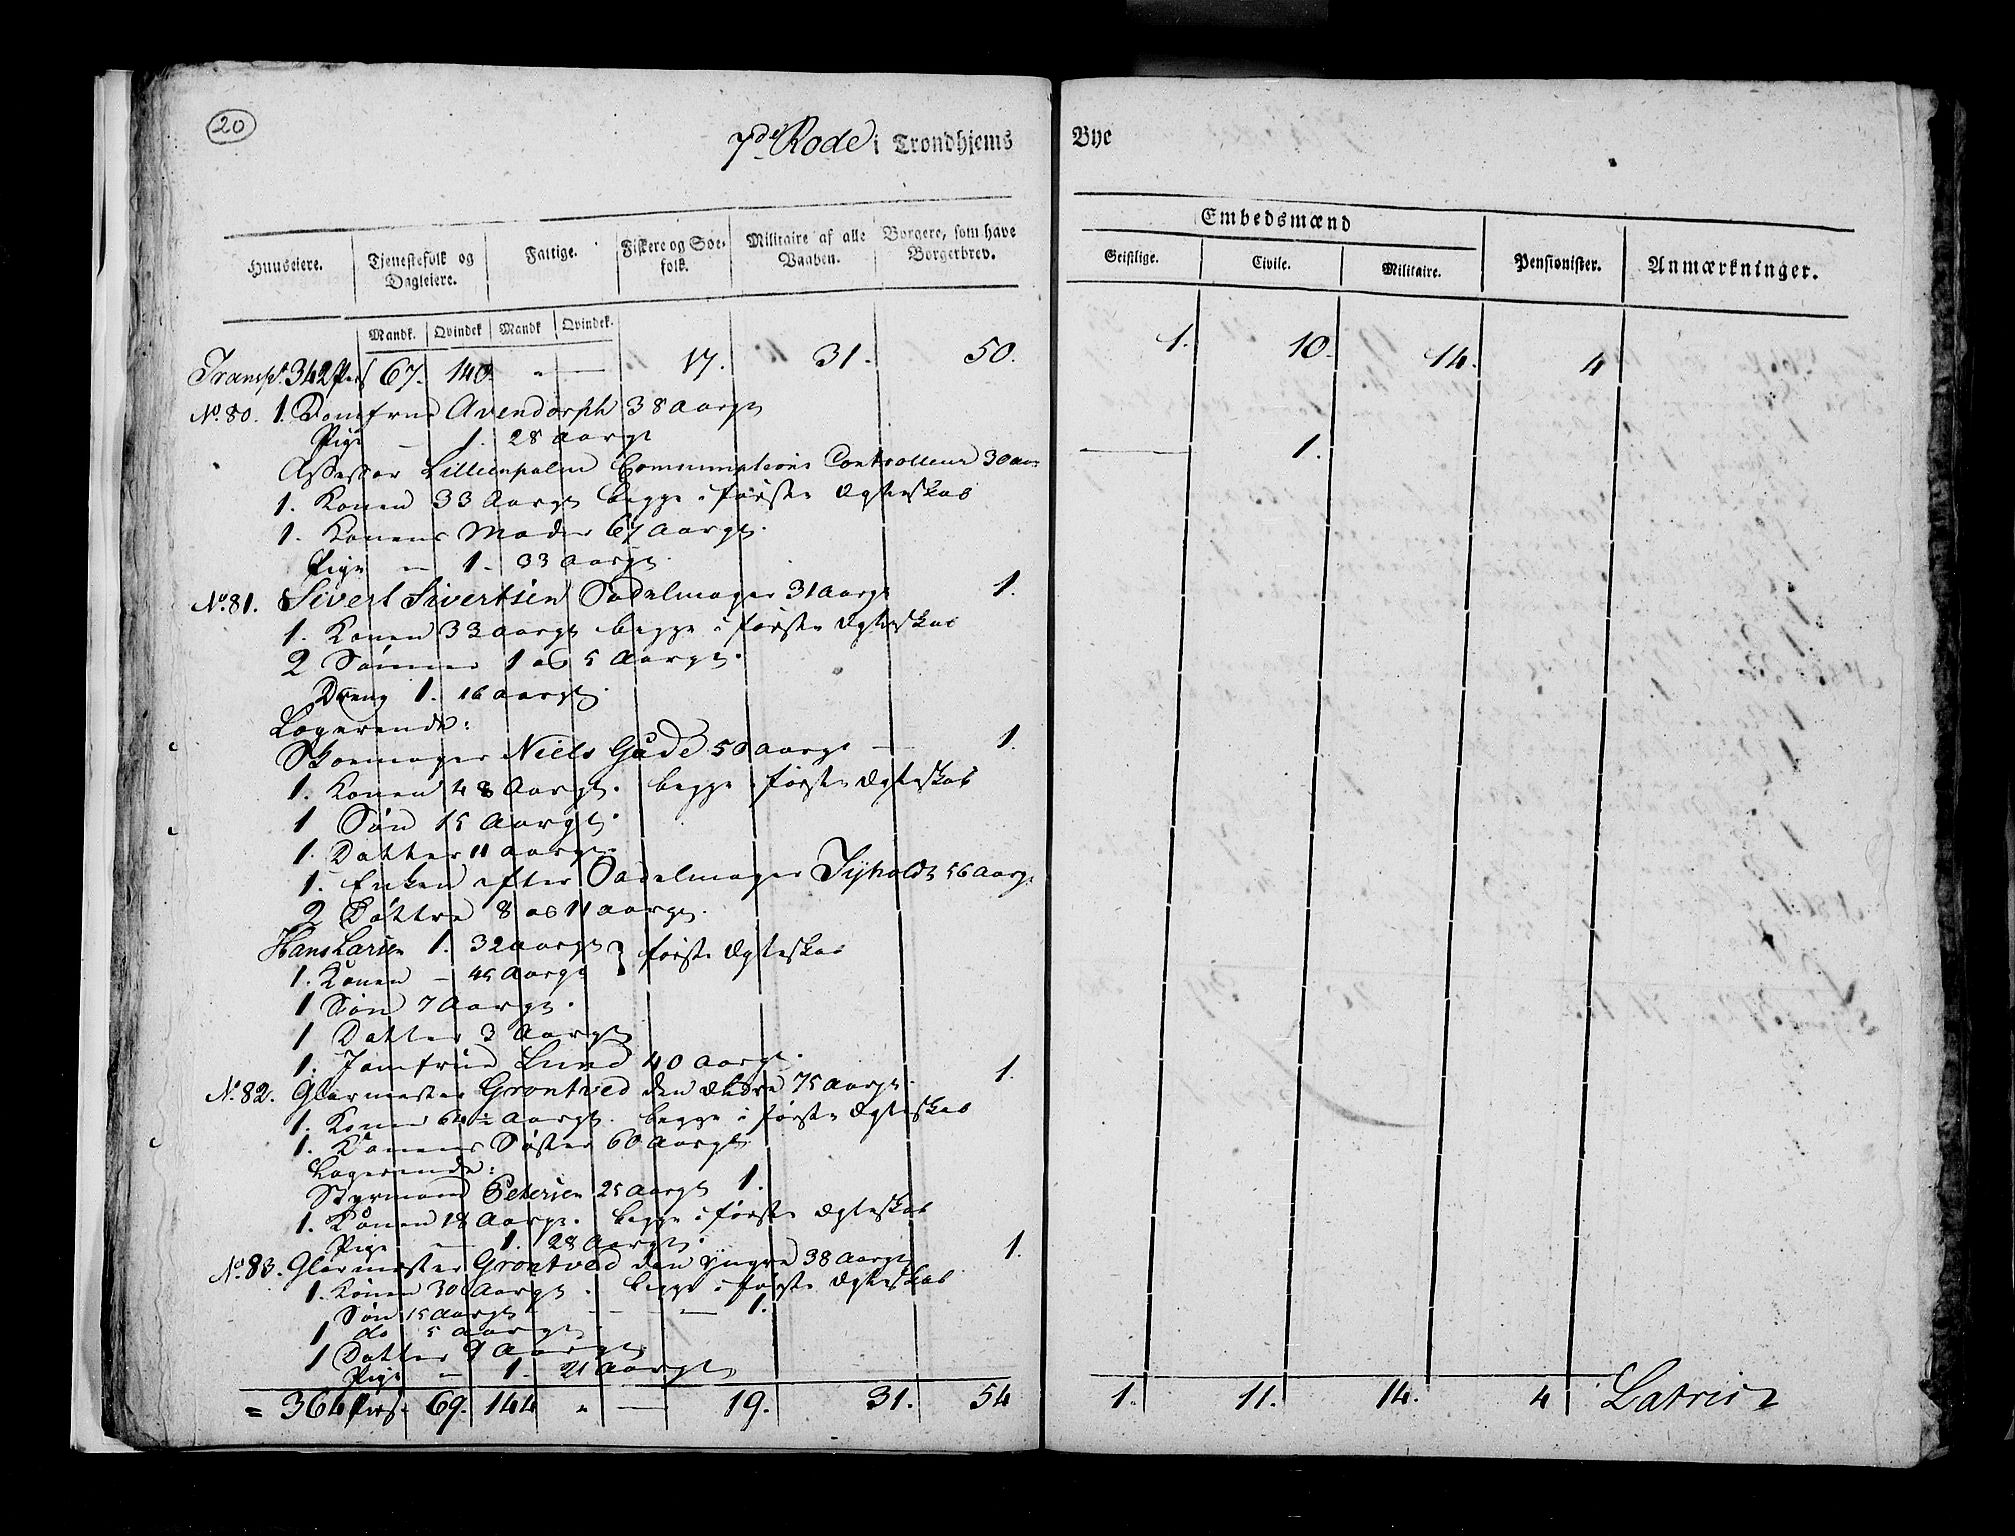 20
7de Rode i Trondhjems Bye
Huuseiere. Tjenestefolk og Dagleiere. Fattige. Fiskere og Søefolk. Militaire af alle Vaaben. Borgere, som have Borgerbrev. Embedsmænd Pensionister. Anmærkninger.
Geistlige. Civile. Militaire.
Mandk. Qvindek Mandk Qvindek.
Transpt. 342 Pers 67. 140. " — 17. 31. 50. 1. 10. 14. 4
No. 80. 1. Jomfrue Avendorph 38 Aargl
Pige — 1. 28 Aargl
Assessor Lillienpalm Consumptions Controlleur 30 aar — 1.
1. Konen 33 Aargl begge i første Ægteskab
1. Konens Moder 67 Aargl.
Pige — 1. 33 Aargl.
No. 81. Sivert Sivertsen Sadelmager 31 Aargl 1.
1. Konen 33 aargl begge i første Ægteskab
2 Sønner 1 og 5 Aargl.
Dreng 1. 16 aargl.
Logerende:
Skoemager Niels Gåde 50 aargl — 1.
1. Konen 48 Aargl. begge i første Ægteskab
1 Søn 15 Aargl.
1. Datter 11 aargl.
1. Enken efter Sadelmager Tyholdt 56 Aargl
2 Døttre 8 og 11 aargl.
Hans Larsen 1. 32 aargl } første Ægteskab
1. Konen — 45 Aargl
1 Søn 7 Aargl.
1 Datter 3 Aargl
1. Jomfrue Lund 40 aargl.
No. 82. Glarmester Grontved den ældre 75 aargl. 1.
1. Konen 64½ Aargl. begge i første Ægteskab
1. Konens Søster 60 Aargl
Logerende:
Styrmand Petersen 25 Aargl 1.
1. Konen 18 Aargl. begge i første Ægteskab
Pige — 1. 28 Aargl.
No. 83. Glarmester Grontved den yngre 38 Aargl 1.
1. Konen 30 Aargl. begge i første Ægteskab
Søn 15 Aargl — — — 1.
1 do 5 aargl
1 Datter 9 Aargl
Pige — 1. 21 Aargl
= 364 Pers. 69. 144 " — 19. 31. 54 1. 11. 14. 4 Latris